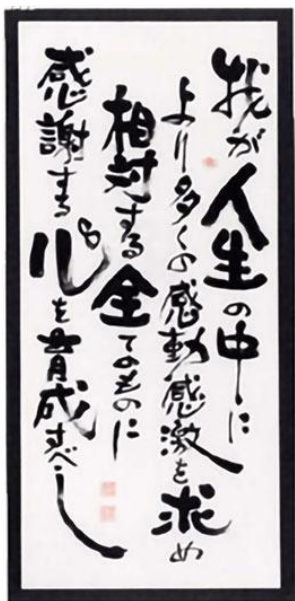 我が人生の中に
より多くの感動感激を求め
相対する全てのものに
感謝する心を育成すべし